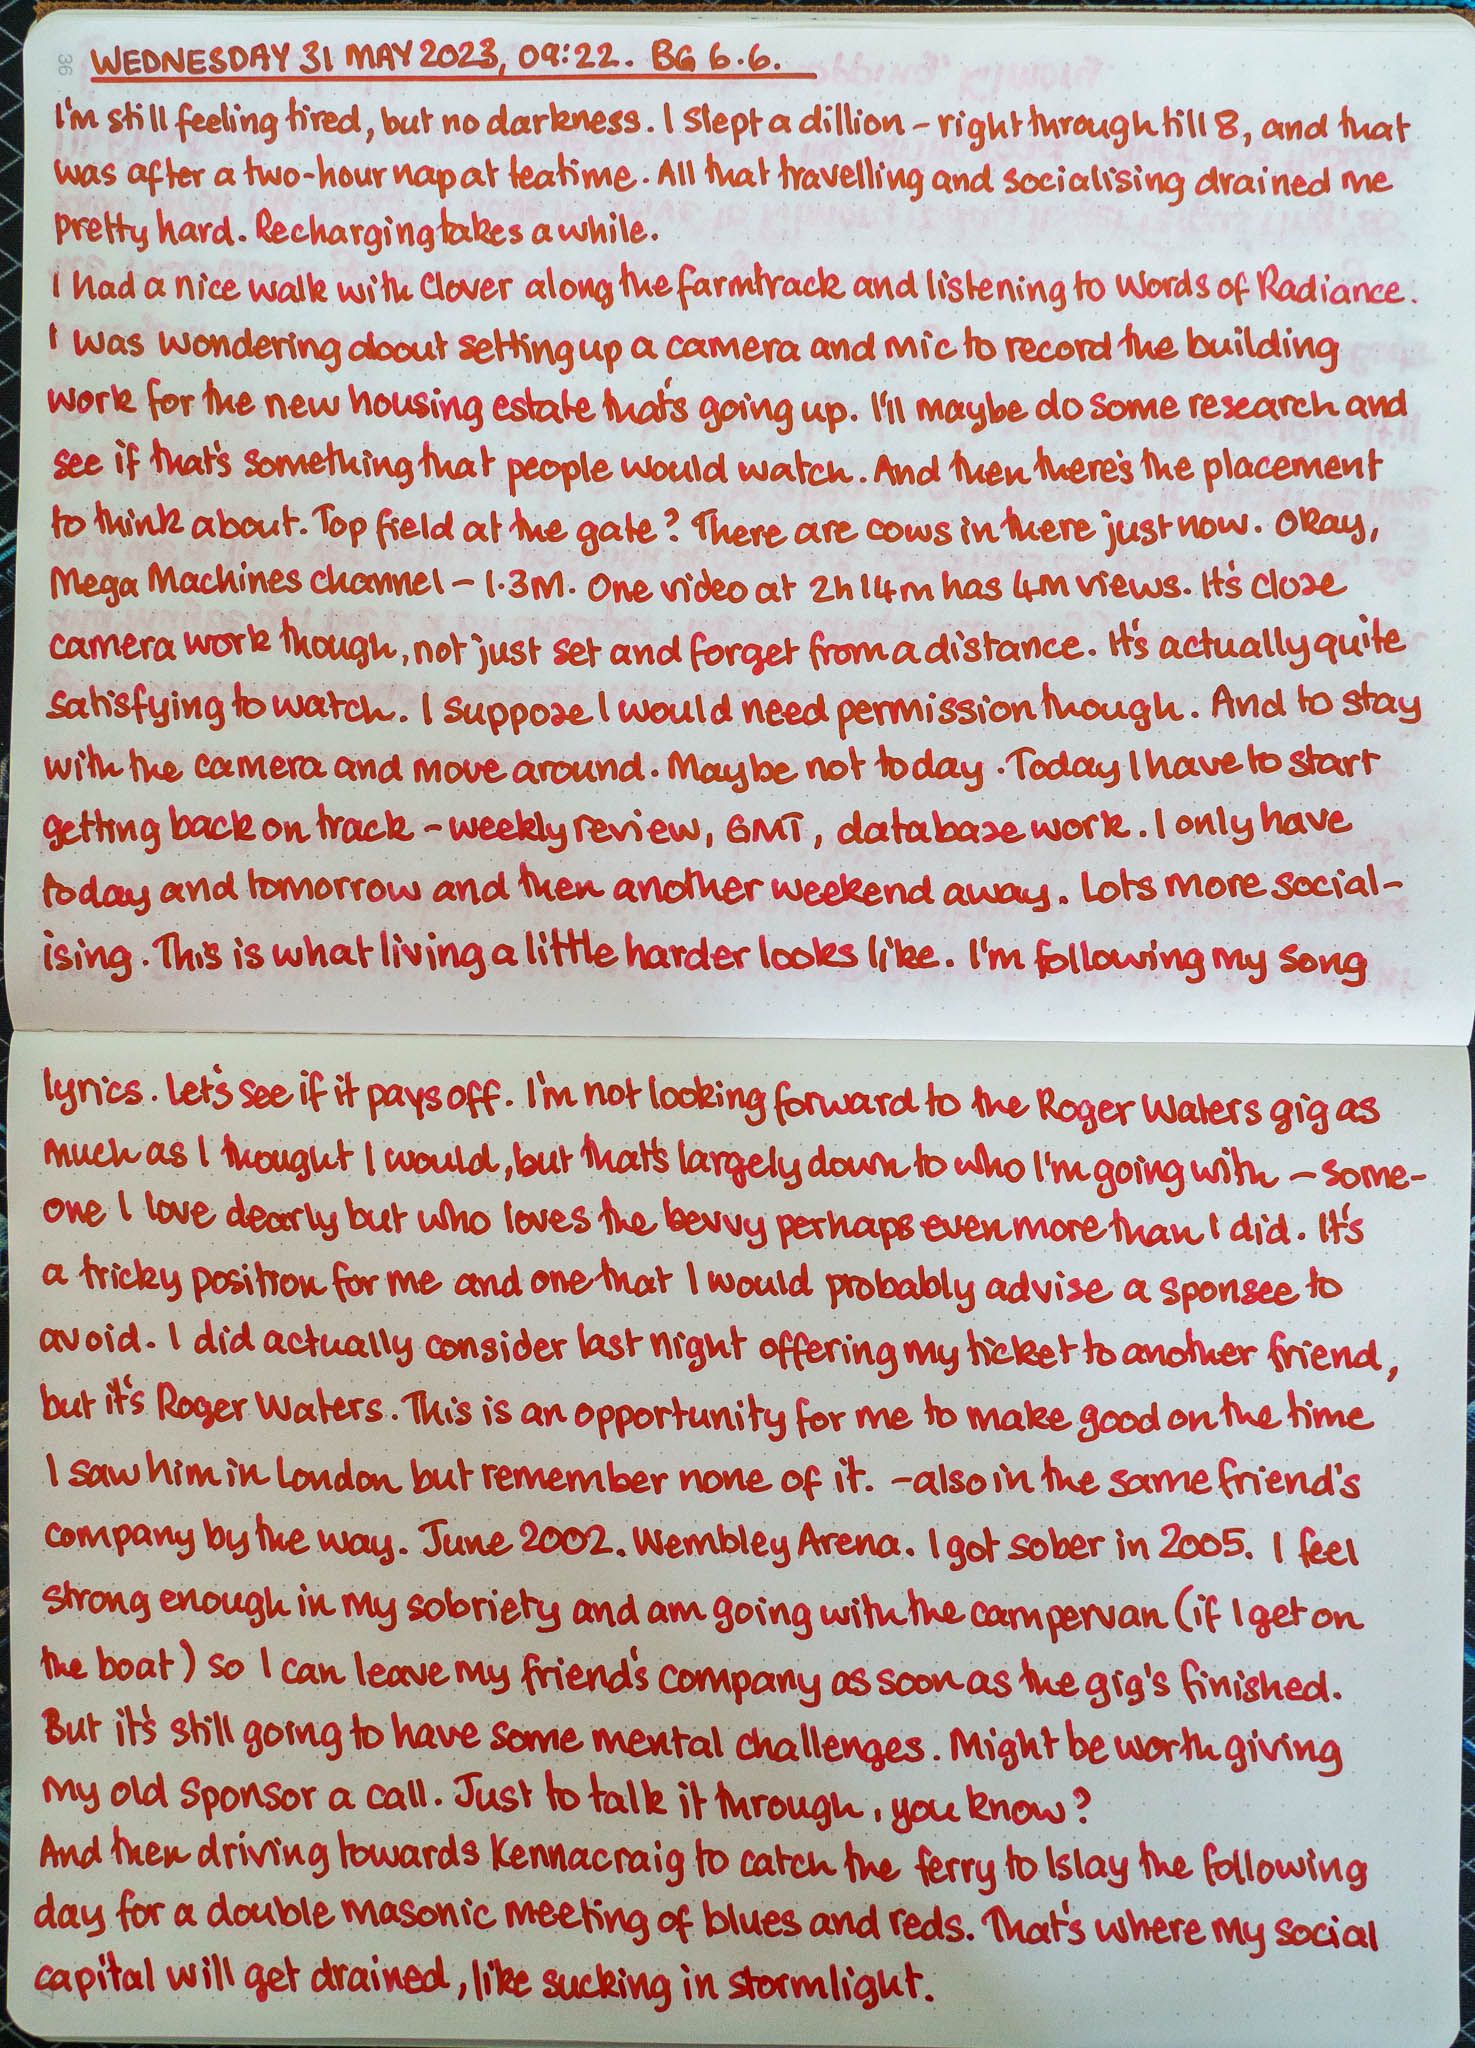 36
WEDNESDAY 31 MAY 2023, 09:22. BG 6.6.
I'm still feeling tired, but no darkness. I slept a dillion – right through till 8, and that
was after a two-hour nap at teatime. All that travelling and socialising drained me
pretty hard. Recharging takes a while.
I had a nice walk with Clover along the farmtrack and listening to Words of Radiance.
I was wondering about setting up a camera and mic to record the building
work for the new housing estate that's going up. I'll maybe do some research and
see if that's something that people would watch. And then there's the placement
to think about. Top field at the gate? There are cows in there just now. Okay,
Mega Machines channel – 1.3M. One video at 2h14m has 4m views. It's close
camera work though, not just set and forget from a distance. It's actually quite
satisfying to watch. I suppose I would need permission though. And to stay
with the camera and move around. Maybe not today. Today I have to start
getting back on track – weekly review, GMT, database work. I only have
today and tomorrow and then another weekend away. Lots more social-
ising. This is what living a little harder looks like. I'm following my song
lyrics. Let's see if it pays off. I'm not looking forward to the Roger Waters gig as
much as I thought I would, but that's largely down to who I'm going with – some-
one I love dearly but who loves the bevvy perhaps even more than I did. It's
a tricky position for me and one that I would probably advise a sponsee to
avoid. I did actually consider last night offering my ticket to another friend,
but it's Roger Waters. This is an opportunity for me to make good on the time
I saw him in London but remember none of it. – also in the same friend's
company by the way. June 2002. Wembley Arena. I got sober in 2005. I feel
strong enough in my sobriety and am going with the campervan (if I get on
the boat) so I can leave my friend's company as soon as the gig's finished.
But it's still going to have some mental challenges. Might be worth giving
my old sponsor a call. Just to talk it through, you know?
And then driving towards Kennacraig to catch the ferry to Islay the following
day for a double masonic meeting of blues and reds. That's where my social
capital will get drained, like sucking in stormlight.